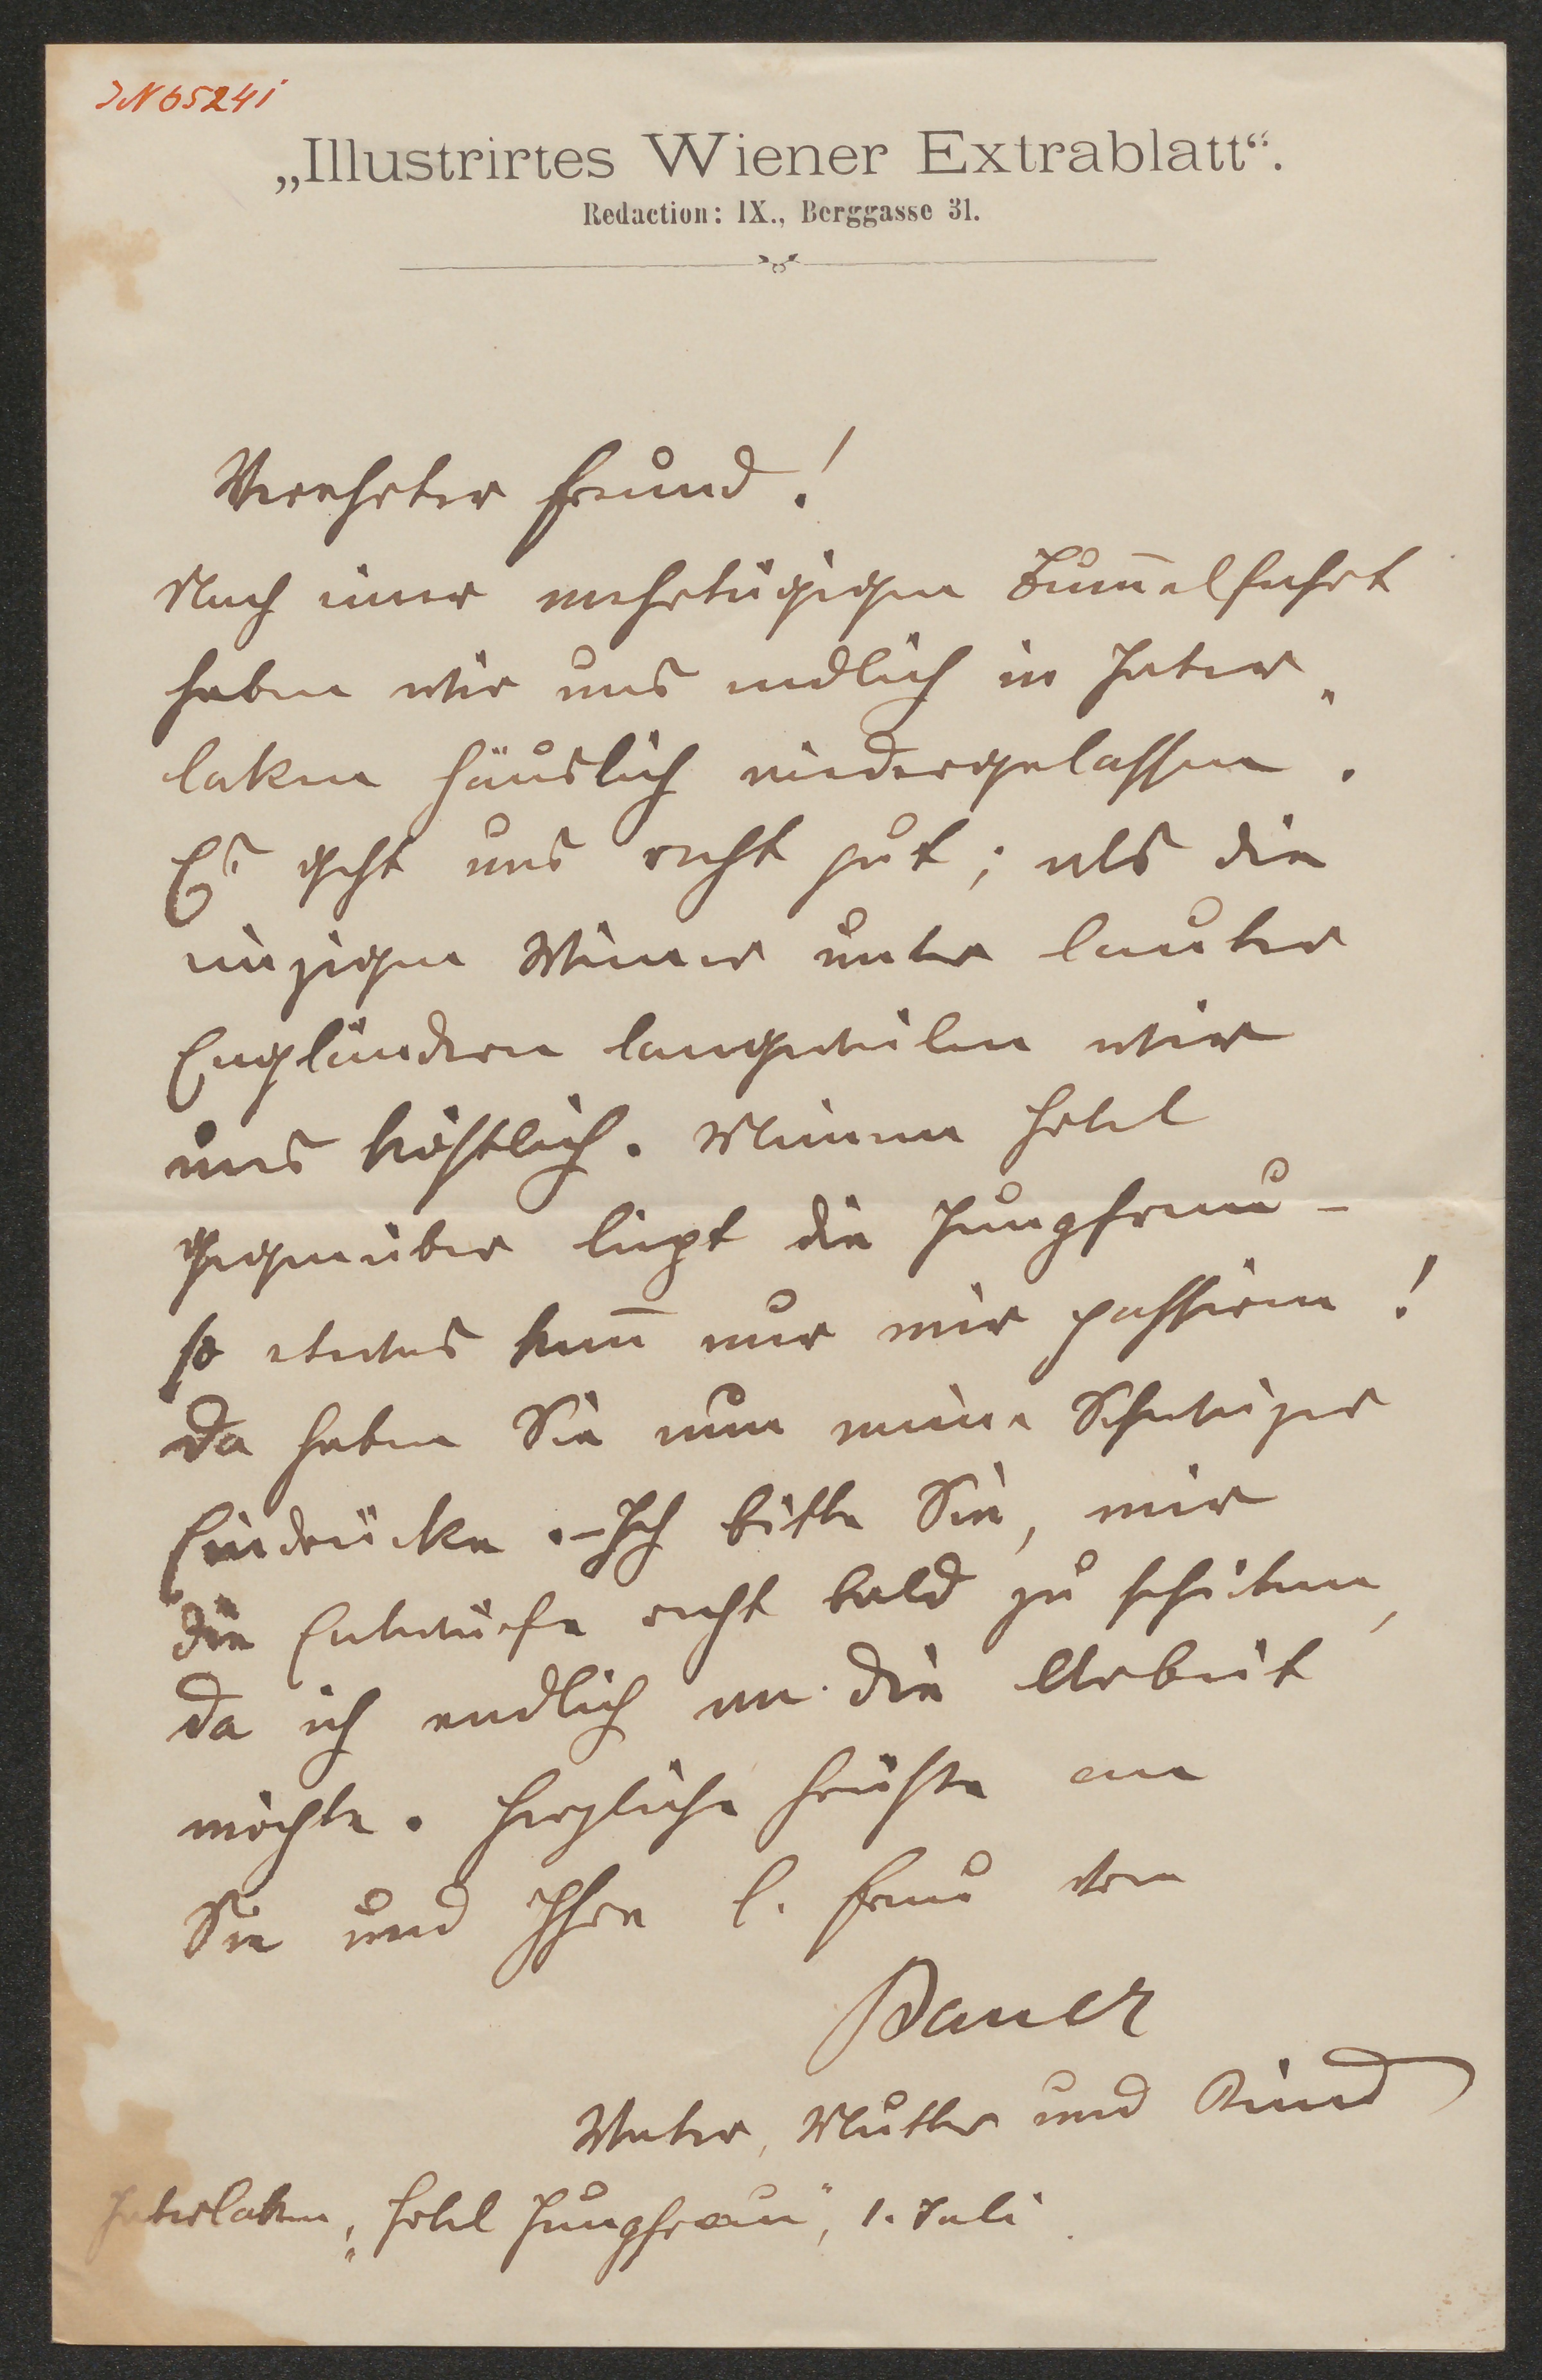 IN 65241
„Illustrirtes Wiener Extrablatt“.
Redaction: IX., Berggasse 31.
Verehrter Freund!
Nach einer mehrtägigen Bum̅elfahrt
haben wir uns endlich in Inter„
laken häuslich niedergelassen.
Es geht uns recht gut; als die
einzigen Wiener unter lauter
Engländern langweilen wir
uns köstlich. Meinem Hotel
gegenüber liegt die Jungfrau –
so etwas kan̅ nur mir passiren!
Da haben Sie nun meine Schweizer
Eindrücke. – Ich bitte Sie, mir
die Entwürfe recht bald zu schicken,
da ich endlich an die Arbeit
möchte. Herzliche Grüße an
Sie und Ihre l. Frau von
Bauer
Vater, Mutter und Kind
Interlaken, „Hotel Jungfrau“, 1. Juli